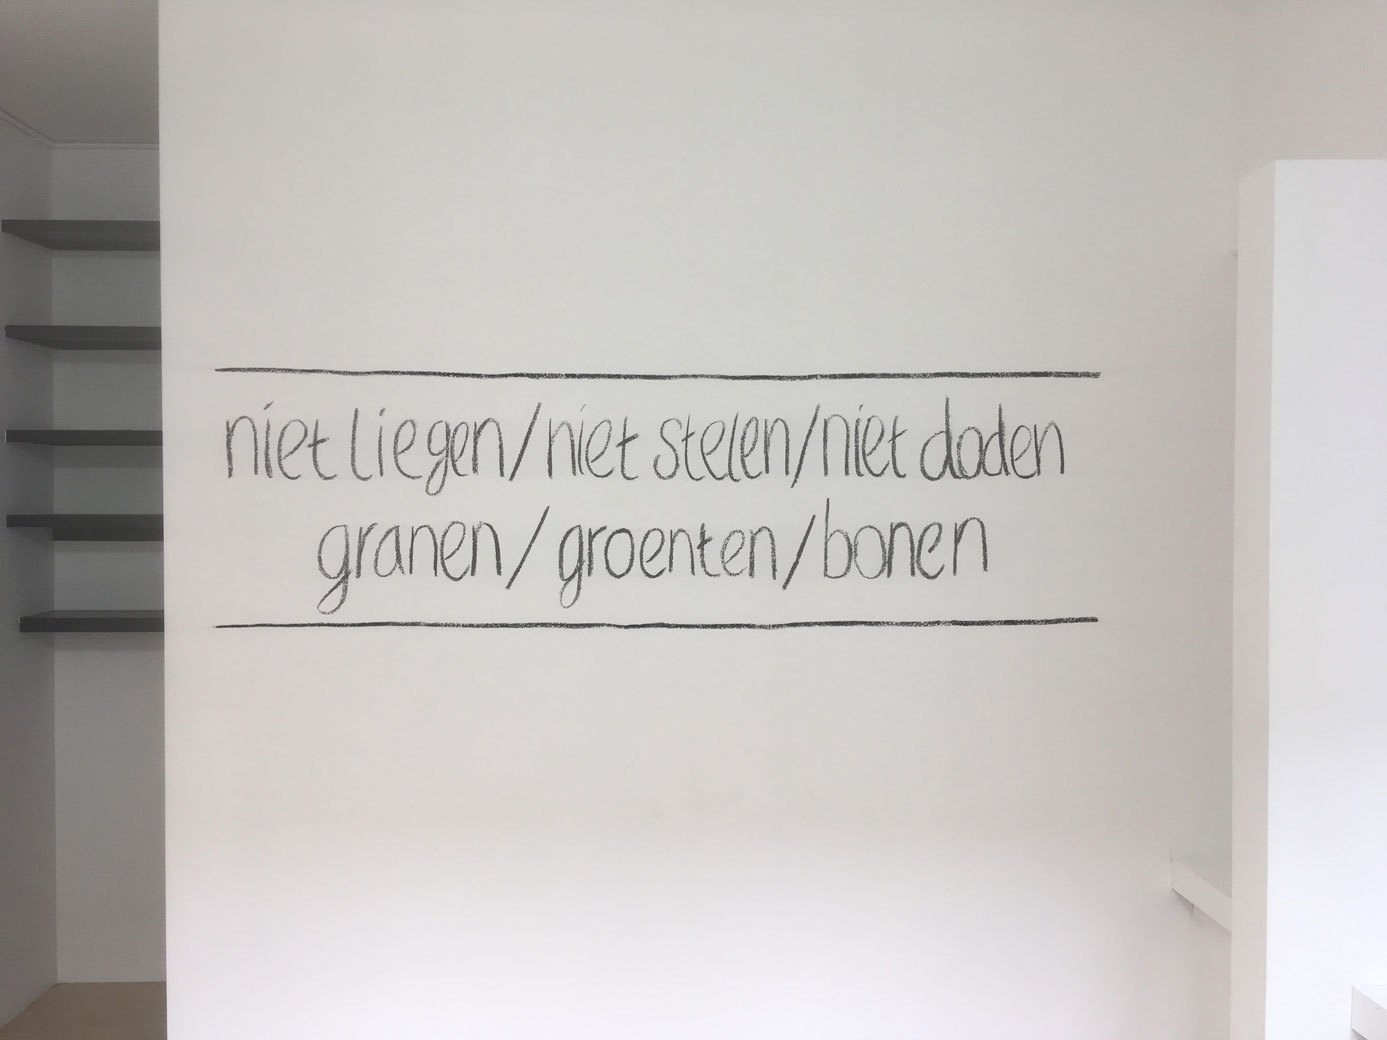 niet liegen/niet stelen/niet doden
granen/groenten/bonen